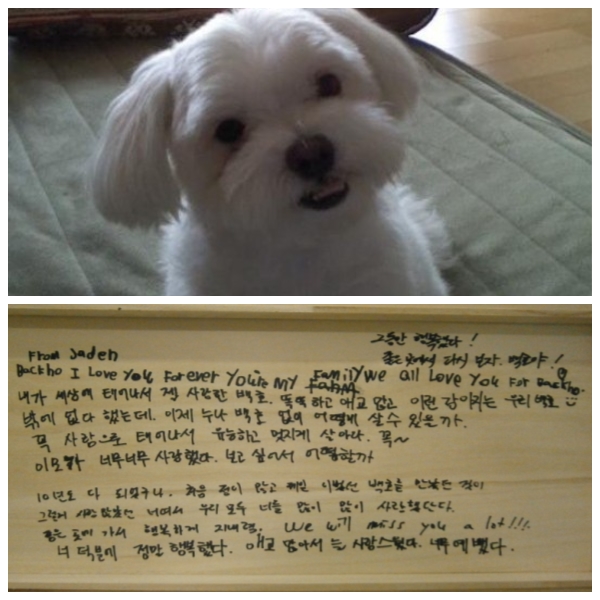 그동안 행복했다!
From Jaden
좋은 곳에서 다시 보자. 백호야!
Backho I Love You Forever You're My Family We all Love You For Backho.
내가 세상에 태어나서 젤 사랑한 백호. 똑똑하고 애교 많고 이런 강아지는 우리 백호
밖에 없다 했는데. 이제 누나 백호 없이 어떻게 살 수 있을까.
꼭 사람으로 태어나서 유능하고 멋지게 살아라. 꼭~
이모가 너무너무 사랑했다. 보고 싶어서 어떡할까
10년도 다 되었구나. 처음 본이 않고 제일 이뻤던 백호를 만났던 것이
그렇게 사랑스러웠던 너여서 우리 모두 너를 많이 많이 사랑했단다.
좋은 곳에 가서 행복하게 지내렴. We will miss you a lot!!!
너 덕분에 정말 행복했다. 애교 많아서 늘 사랑스웠다. 너무 예뻤다.